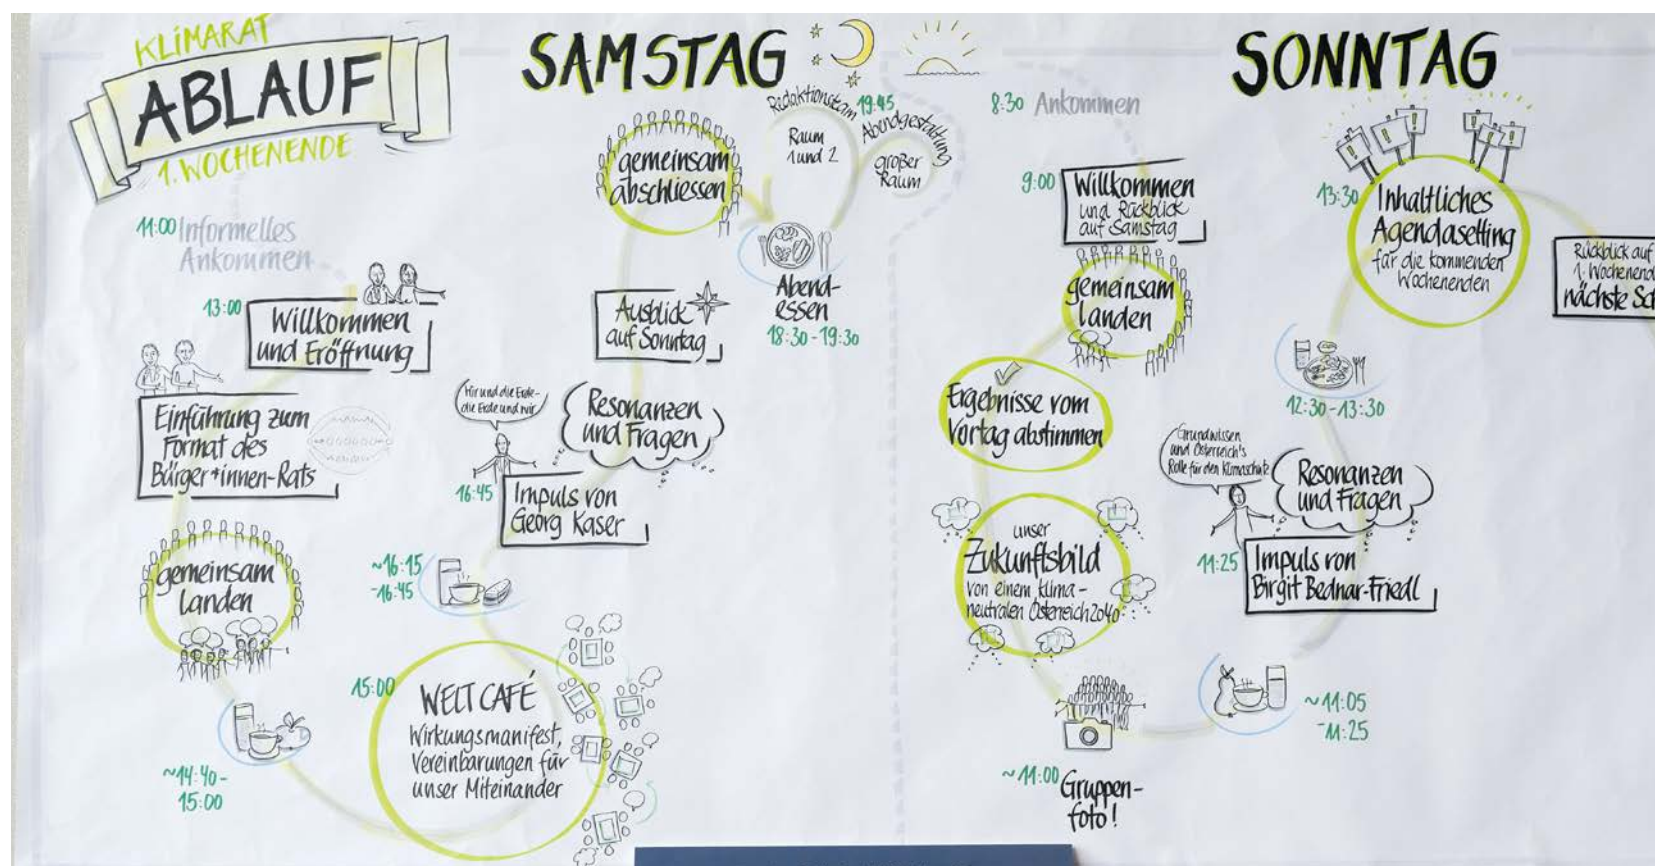 KLIMARAT
ABLAUF
1. WOCHENENDE
SAMSTAG
11:00 Informelles
Ankommen
13:00
Willkommen
und Eröffnung
Einführung zum
Format des
Bürger*innen-Rats
gemeinsam
landen
~14:40-
15:00
15:00
WELT CAFÉ
Wirkungsmanifest,
Vereinbarungen für
unser Miteinander
~16:15
-16:45
Wir und die Erde-
die Erde und wir
16:45
Impuls von
Georg Kaser
Resonanzen
und Fragen
Ausblick
auf Sonntag
gemeinsam
abschliessen
Abend-
essen
18:30-19:30
Redaktionsteam
Raum
1 und 2
19:45
Abendgestaltung
großer
Raum
SONNTAG
8:30 Ankommen
9:00
Willkommen
und Rückblick
auf Samstag
gemeinsam
landen
Ergebnisse vom
Vortag abstimmen
unser
Zukunftsbild
von einem klima-
neutralen Österreich 2040
~11:00
Gruppen-
foto!
~11:05
-11:25
11:25
Grundwissen
und Österreich's
Rolle für den Klimaschutz
Impuls von
Birgit Bednar-Friedl
Resonanzen
und Fragen
12:30-13:30
13:30
Inhaltliches
Agendasetting
für die kommenden
Wochenenden
Rückblick auf
1. Wochenend
nächste Sc